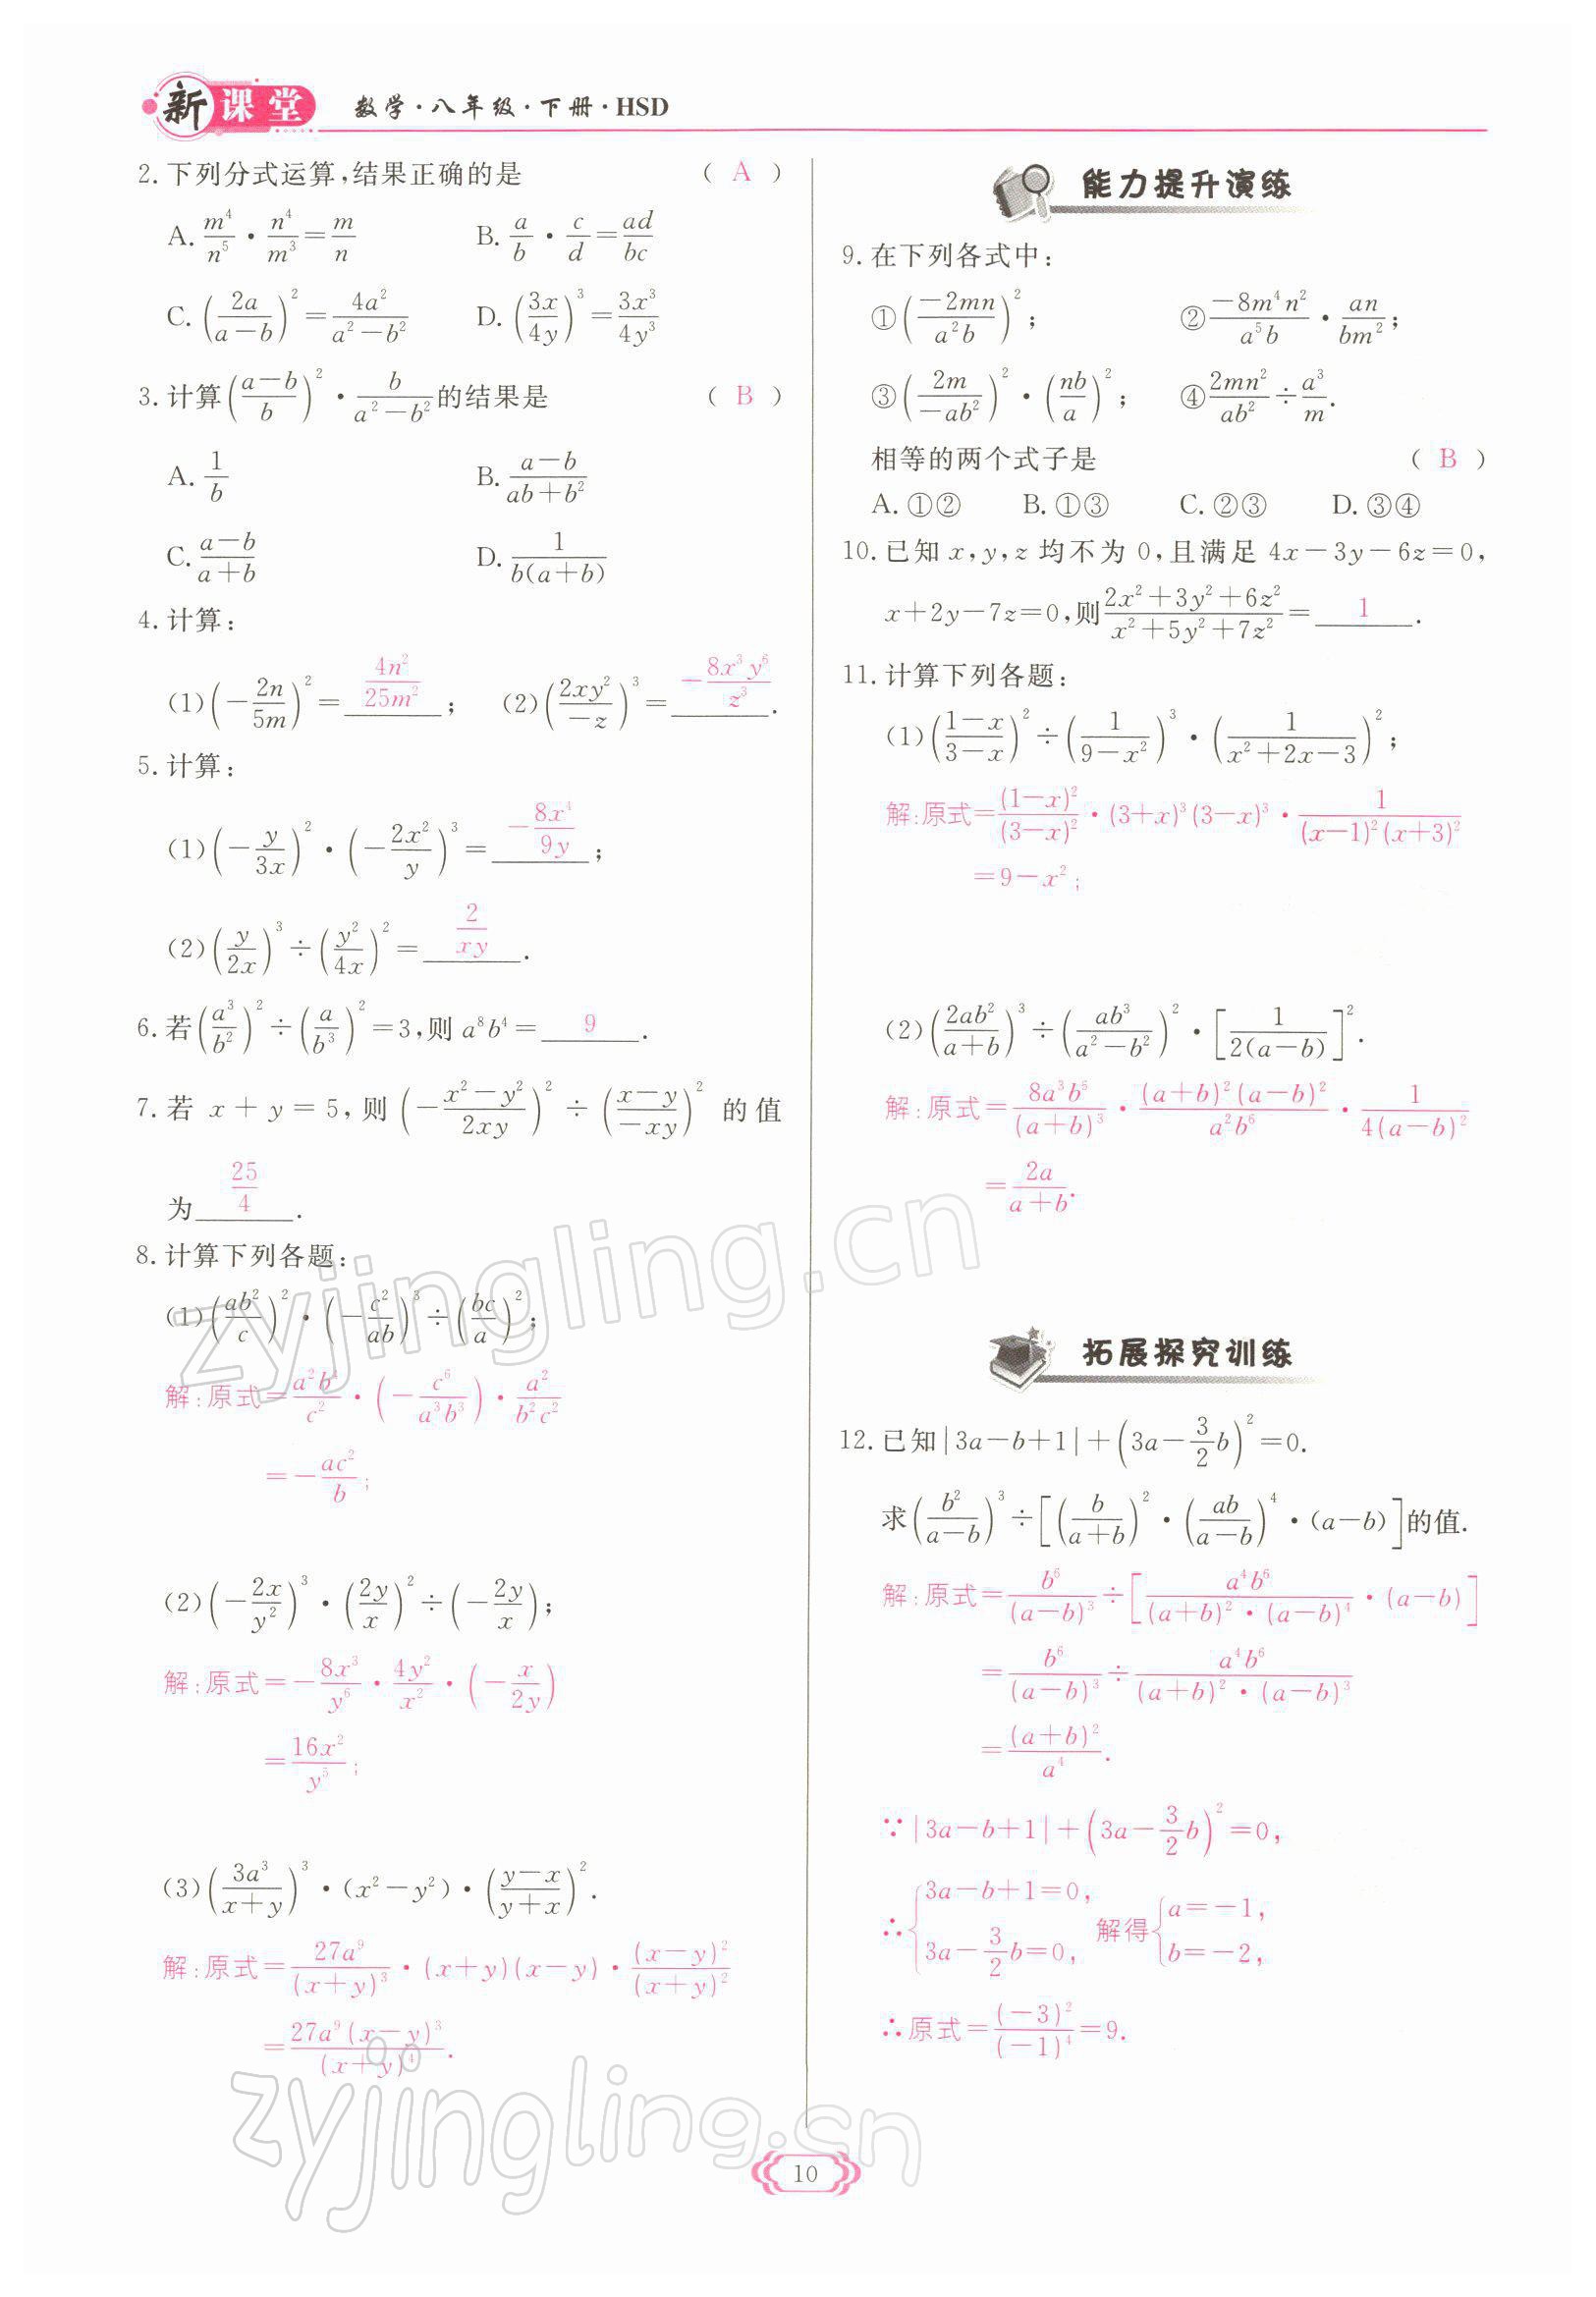 新课堂 数学·八年级·下册·HSD
2. 下列分式运算,结果正确的是 ( A )
A. m⁴/n⁵ · n⁴/m³ = m/n B. a/b · c/d = ad/bc
C. (2a/(a-b))² = 4a²/(a²-b²) D. (3x/4y)³ = 3x³/4y³
3. 计算((a-b)/b)² · b/(a²-b²)的结果是 ( B )
A. 1/b B. (a-b)/(ab+b²)
C. (a-b)/(a+b) D. 1/(b(a+b))
4. 计算:
(1)(-2n/5m)² = 4n²/25m²; (2)(2xy²/-z)³ = -8x³y⁶/z³.
5. 计算:
(1)(-y/3x)² · (-2x²/y)³ = -8x⁴/9y;
(2)(y/2x)³ ÷ (y²/4x)² = 2/xy.
6. 若(a³/b²)² ÷ (a/b³)² =3,则 a⁸b⁴= 9.
7. 若 x+y=5,则 (-(x²-y²)/2xy)² ÷ ((x-y)/-xy)² 的值
为 25/4.
8. 计算下列各题:
(1)(ab²/c)² · (-c²/ab)³ ÷ (bc/a)²;
解:原式= a²b⁴/c² · (-c⁶/a³b³) · a²/b²c²
= -ac²/b;
(2)(-2x/y²)³ · (2y/x)² ÷ (-2y/x);
解:原式= -8x³/y⁶ · 4y²/x² · (-x/2y)
= 16x²/y⁵;
(3)(3a³/(x+y))³ · (x²-y²) · ((y-x)/(y+x))².
解:原式= 27a⁹/(x+y)³ · (x+y)(x-y) · (x-y)²/(x+y)²
= 27a⁹(x-y)³/(x+y)⁴.
能力提升演练
9. 在下列各式中:
①(-2mn/a²b)²; ②-8m⁴n²/a⁵b · an/bm²;
③(2m/-ab²)² · (nb/a)²; ④2mn²/ab² ÷ a³/m.
相等的两个式子是 ( B )
A. ①② B. ①③ C. ②③ D. ③④
10. 已知 x,y,z 均不为 0,且满足 4x-3y-6z=0,
x+2y-7z=0,则(2x²+3y²+6z²)/(x²+5y²+7z²)= 1.
11. 计算下列各题:
(1)((1-x)/(3-x))² ÷ (1/(9-x²))³ · (1/(x²+2x-3))²;
解:原式=(1-x)²/(3-x)² · (3+x)³(3-x)³ · 1/((x-1)²(x+3)²)
=9-x²;
(2)(2ab²/(a+b))³ ÷ (ab³/(a²-b²))² · [1/(2(a-b))]².
解:原式= 8a³b⁶/(a+b)³ · (a+b)²(a-b)²/a²b⁶ · 1/(4(a-b)²)
= 2a/(a+b).
拓展探究训练
12. 已知|3a-b+1|+(3a-3/2b)²=0.
求(b²/(a-b))³ ÷ [(b/(a+b))² · (ab/(a-b))⁴ · (a-b)]的值.
解:原式= b⁶/(a-b)³ ÷ [a⁴b⁶/((a+b)² · (a-b)⁴) · (a-b)]
= b⁶/(a-b)³ ÷ a⁴b⁶/((a+b)² · (a-b)³)
= (a+b)²/a⁴.
∵|3a-b+1|+(3a-3/2b)²=0,
∴{3a-b+1=0, 3a-3/2b=0, 解得{a=-1, b=-2,
∴原式=(-3)²/(-1)⁴=9.
10
zyjingling.cn
zyjingling.cn